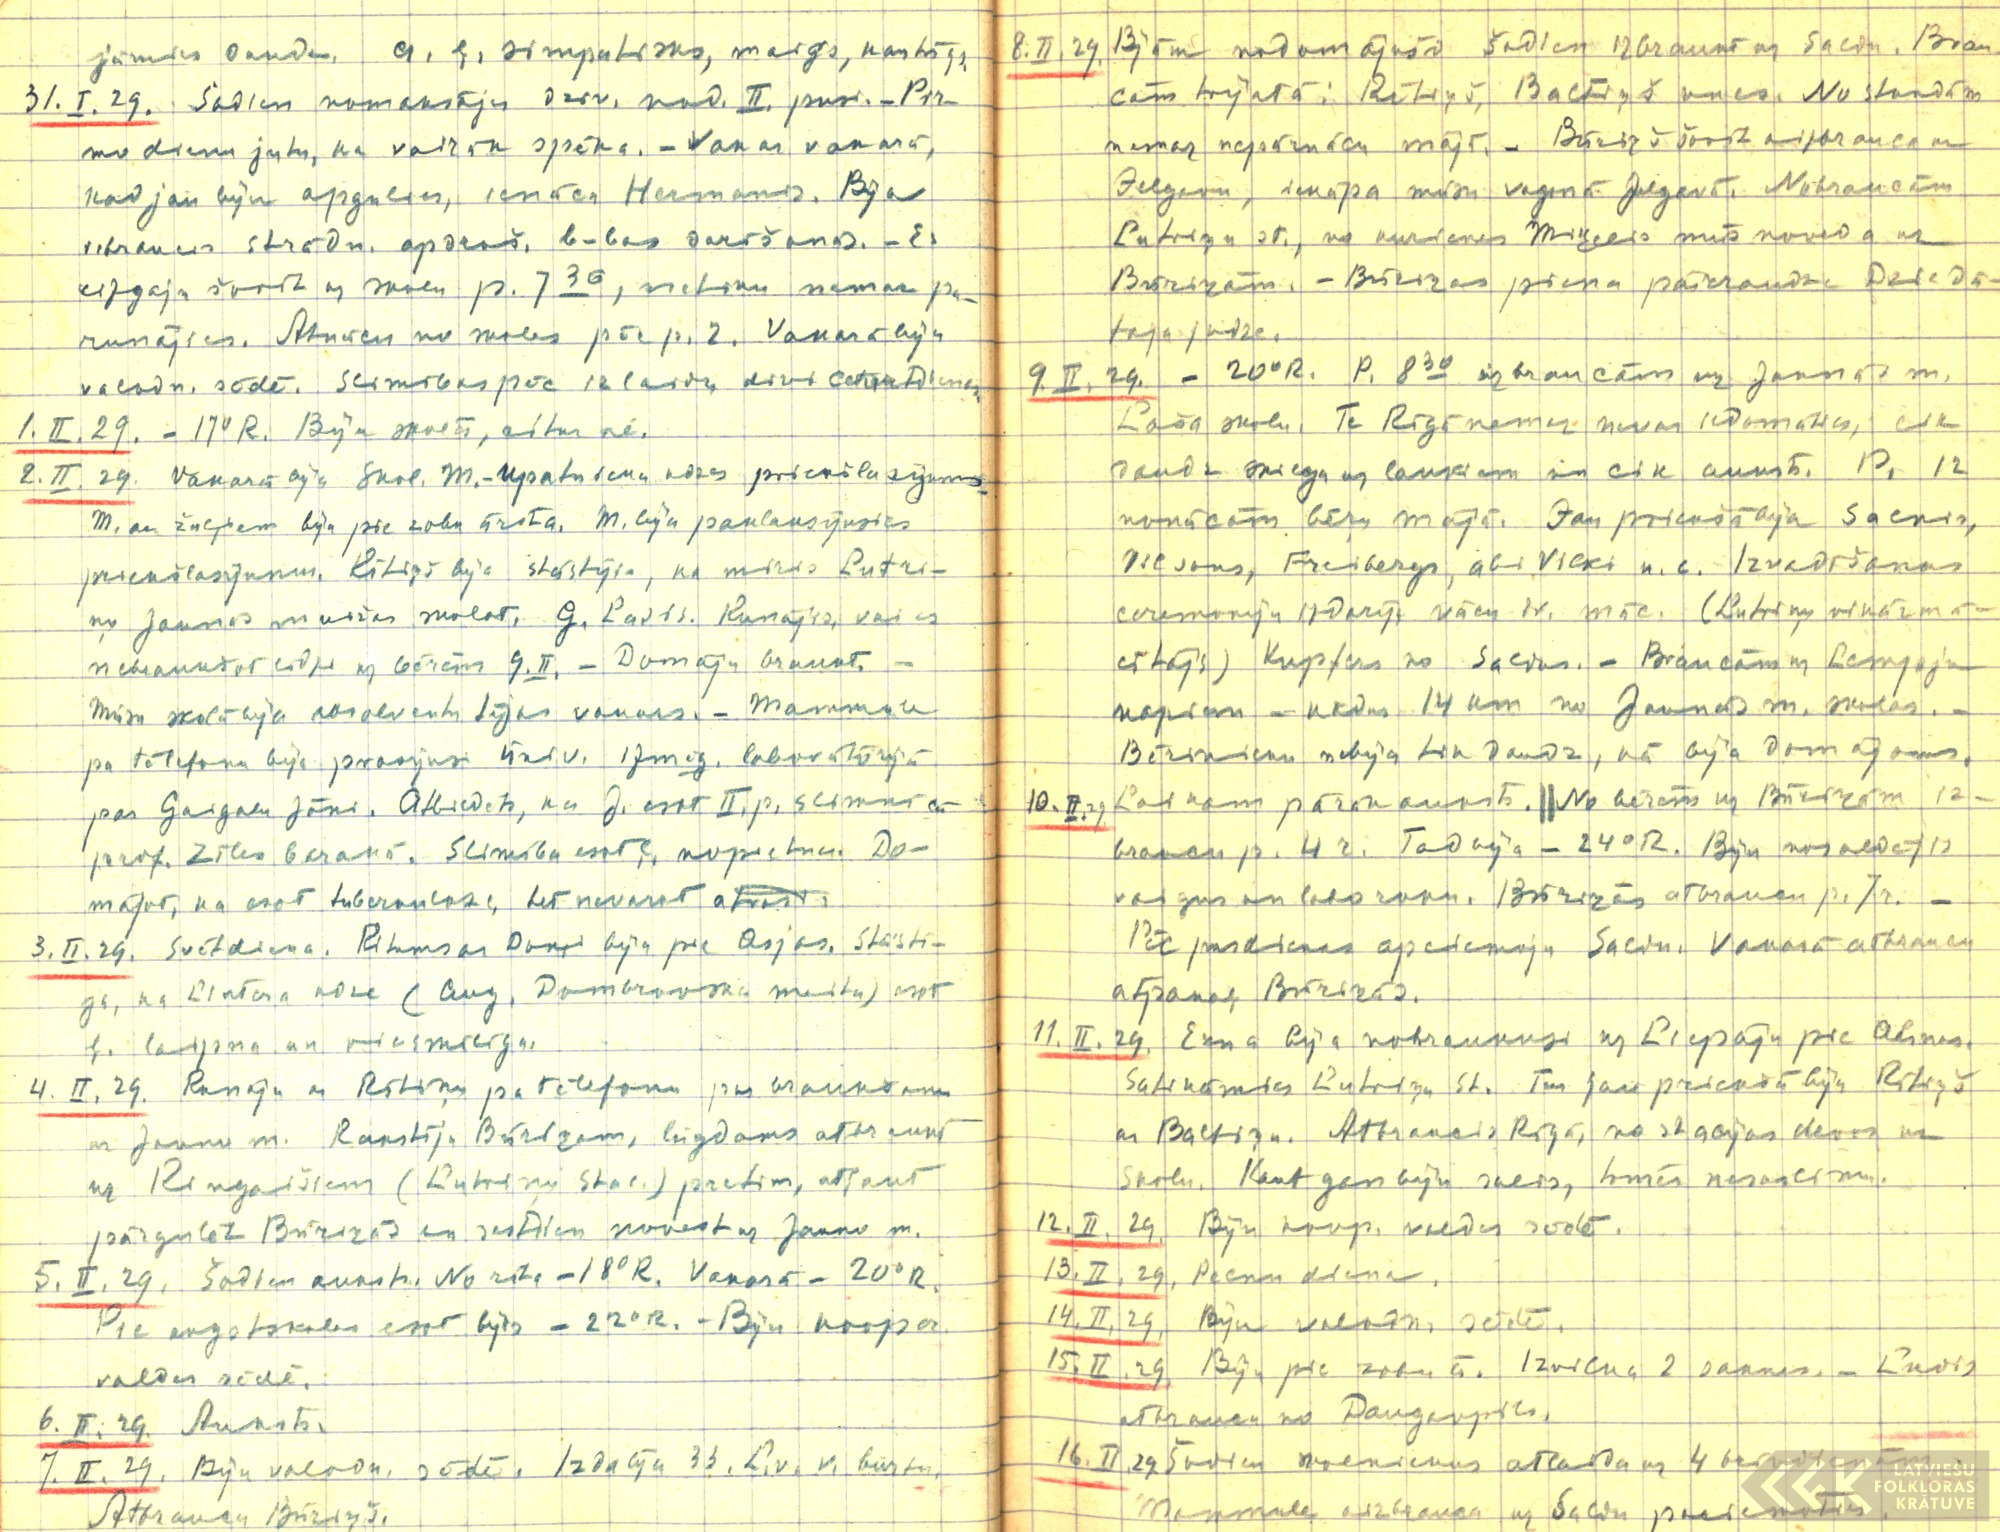 jāmies daudz. A. ļ. simpatisks, maigs, kautrīgs.
31. I. 29. Šodien nomaksāju dzīv. nod. II. pusi. – Pir-
mo dienu jutu, ka vairāk spēka. – Vakar vakarā,
kad jau biju apgulies, ienāca Hermanis. Bija
iebraucis strādn. apdroš. b-bas darīšanās. – Es
aizgāju šorīt uz skolu p. 7 30, netiku nemaz pa-
runāties. Atnācu no skolas pēc p. 2. Vakarā biju
valodn. sēdē. Slimības pēc izlaidu divi ceturtdienas.
1. II. 29. – 17° R. Biju skolā, citur nē.
2. II. 29. Vakarā bija Skol. M.-Upatnieku kdzes priekšlasījums.
M. ar bija pie zobu ārsta. M. bija paklausījusies
priekšlasījumu. Rītiņš bija stāstījis, ka miris Lutri-
ņu Jaunās muižas skolot. G. Lasis. Runājis, vai es
nebraukšot līdzi uz bērēm 9. II. – Domāju braukt. –
Mūsu skolā bija absolventu tējas vakars. – Mammule
pa telefonu bija prasījusi Univ. izmeg. laboratorijā
par Gaigalu Jāni. Atbildēts, ka J. esot II. p. slimnīcā
prof. Zīles barakā. Slimība esot ļ. nopietna. Do-
mājot, ka esot tuberkuloze, bet nevarot atrast.
3. II. 29. Svētdiena. Ritums ar bija pie Asjas. Stāstī-
ja, ka Lintera kdze (Aug. Dombrovska meita) esot
ļ. laipna un viesmīlīga.
4. II. 29. Runāju ar Rītiņu pa telefonu par braukšanu
uz Jauno m. Rakstīju Būriņam, lūgdams atbraukt
uz Ringaišiem (Lutriņu stac.) pretim, atļaut
pārgulēt Būriņās un sestdien novest uz Jauno m.
5. II. 29. Šodien auksts. No rīta – 18° R. Vakarā – 20° R.
Pie augstskolas esot bijis – 22° R. – Biju kooper.
valdes sēdē.
6. II. 29. Auksts.
7. II. 29. Biju valodn. sēdē. Izdalīja 33. L. v. v. burtn.
Atbrauca Būriņš.
8. II. 29. Bijām nodomājuši šodien izbraukt uz Saldu. Brau-
cām trijatā: Rītiņš, Baltiņš un es. No stundām
nemaz nepārnācu mājā. – Būriņš šorīt aizbrauca uz
Jelgavu, iekāpa mūsu vagonā Jelgavā. Nobraucām
Lutriņu st., no kurienes Miķelis mūs noveda uz
Būriņām. – Būriņas piena pārraudze Dziedā-
taja jkdze.
9. II. 29. – 20° R. P. 8 30 izbraucām uz Jaunās m.
Laša skolu. Te Rīgā nemaz nevar iedomāties, cik
daudz sniega uz laukiem un cik auksts. P. 12
nonācām bēru mājā. Jau priekšā bija Sacnis,
Vilsons, Freibergs, abi Vilki u. c. Izvadīšanas
ceremoniju izdarīja vācu dr. māc. (Lutriņu vikārmā-
cītājs) Kupfers no Saldus. – Braucām uz Lempju
kapiem – kādus 14 km no Jaunās m. skolas. –
Bērinieku nebija tik daudz, kā bija domājams.
Laikam pārāk auksts. || 10. II. 29. No bērēm uz Būriņām iz-
braucu p. 4 r. Tad bija – 24° R. Biju nosaldējis
vaigus un labo roku. Būriņās atbraucu p. 7 r. –
Pēc pusdienas apciemoju Saldu. Vakarā atbraucu
atpakaļ Būriņās.
11. II. 29. Erna bija nobraukusi uz Liepāju pie Almas.
Satikāmies Lutriņu st. Tur jau priekšā bija Rītiņš
ar Baltiņu. Atbraucis Rīgā, no stacijas devos uz
skolu. Kaut gan biju salis, tomēr nesaslimu.
12. II. 29. Biju koop. valdes sēdē.
13. II. 29. Pelnu diena.
14. II. 29. Biju valodn. sēdē.
15. II. 29. Biju pie zobu ā. Izvilka 2 saknes. – Ludis
atbrauca no Daugavpils.
16. II. 29. Šodien skolnieku atlaida uz 4 brīvdienām.
Mammule aizbrauca uz Saldu paciemoties.
LATVIEŠU
FOLKLORAS
KRĀTUVE